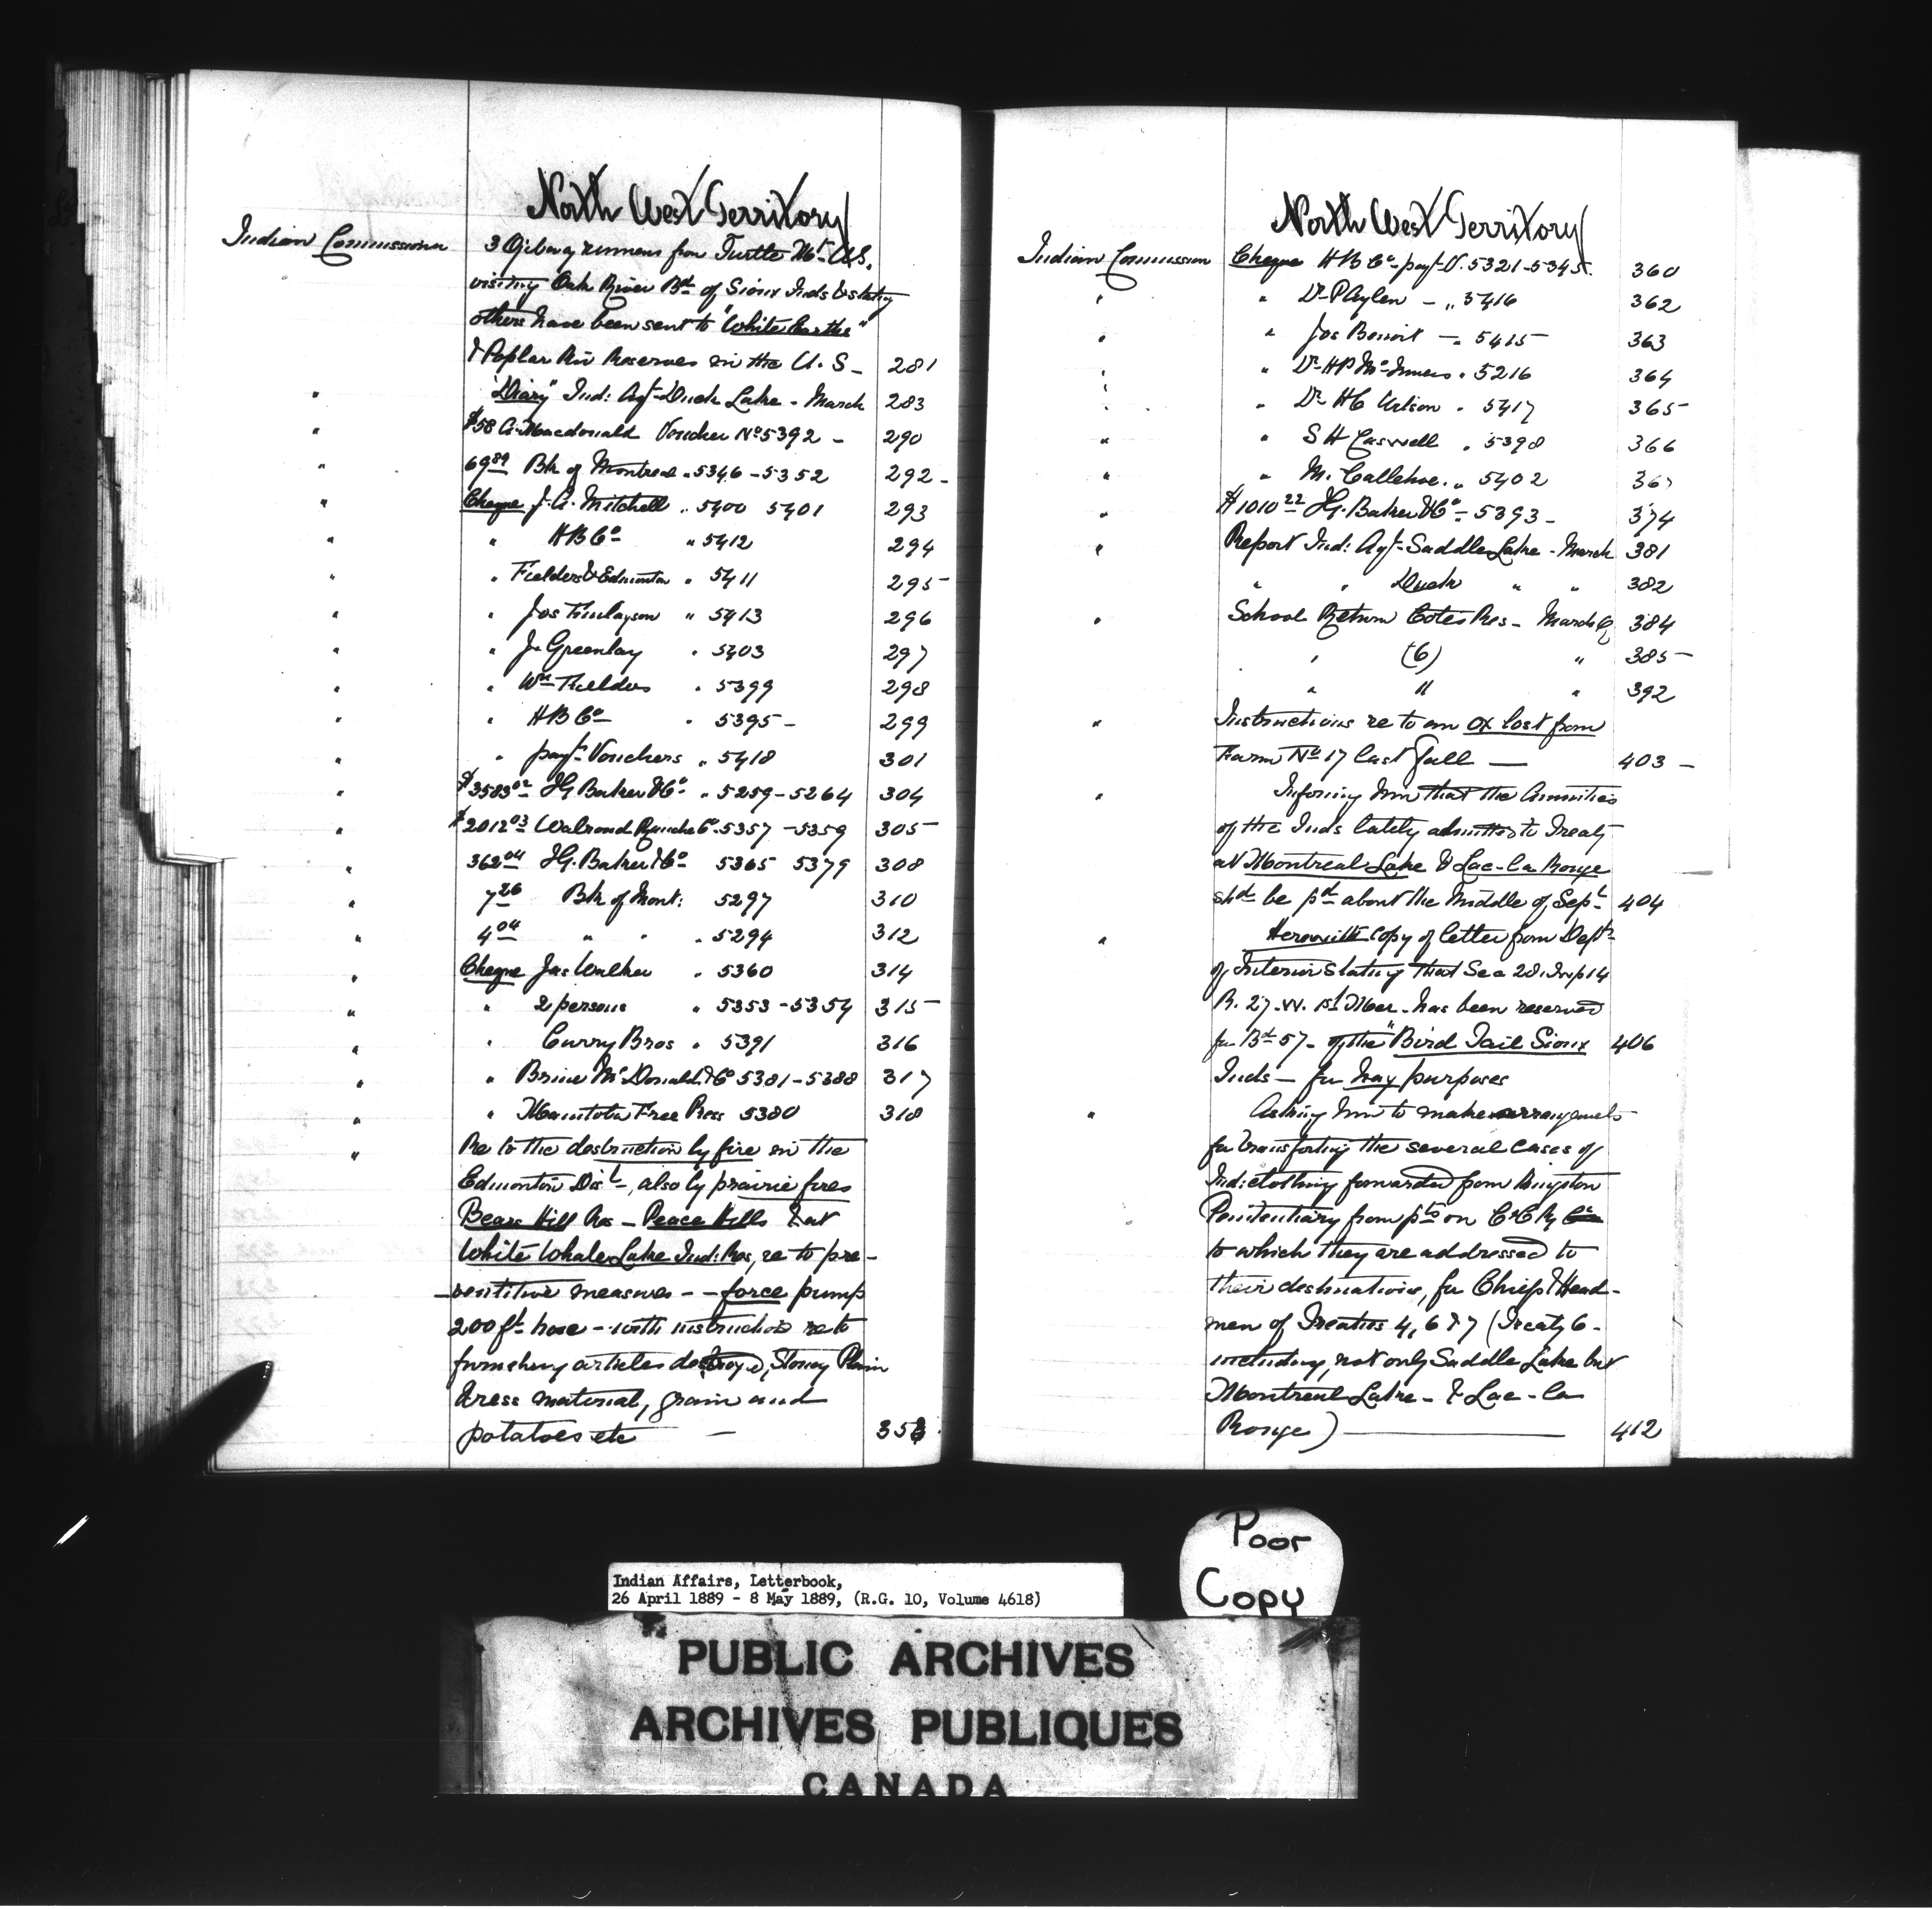 North West Territory
Indian Commissioner 3 Ojibway runners from Turtle Mt U.S.
visiting Oak River Bd of Sioux Inds & stating
others have been sent to "White Earths"
& Poplar Riv Reserves in the U.S - 281
" "Diary" Ind: Agt Duck Lake - March 283
" $58 A. Macdonald Voucher No 5392 - 290
" 69 89 Bk of Montreal " 5346 - 5352 292 -
" Cheque J. A. Mitchell " 5400 5401 293
" " H B Co " 5412 294
" " Fielders & Edmonton " 5411 295 -
" " Jos Finlayson " 5413 296
" " J. Greenlay " 5403 297
" " Wm Fielders " 5399 298
" " H B Co " 5395 - 299
" " payt Vouchers " 5418 301
" $3583 02 I G. Baker & Co " 5259 - 5264 304
" $2012 03 Walrond Ranche Co 5357 - 5359 305 -
" 362 04 I G. Baker & Co 5365 5379 308
" 7 26 Bk of Mont: 5297 310
" 4 04 " " " 5294 312
" Cheque Jas Walker " 5360 314
" " 2 persons " 5353 - 5354 315 -
" " Curry Bros " 5391 316
" " Brine McDonald & Co 5381 - 5388 317
" " Manitoba Free Press 5380 318
" Re to the destruction by fire in the
Edmonton Dist -, also by prairie fires
Bears Hill Res - Peace Hills & at
White Whale Lake Ind: Res, re to pre -
- ventitive measures - - force pump
200 ft hose - with instructions re to
furnishing articles destroyed, Stoney Plain
dress material, grain and
potatoes etc - 353
North West Territory
Indian Commission Cheque H B Co payt V. 5321 - 5345. 360
" " Dr P Aylen - " 5416 362
" " Jos Benoit - " 5415 363
" " Dr H P McInnes " 5216 364
" " Dr H C Wilson " 5417 365 -
" " S H Caswell " 5398 366
" " M. Callehoe. " 5402 367
" $1010 22 I G. Baker & Co - 5393 - 374
" Report Ind: Agt Saddle Lake - March 381
" " Duck " " 382
" School Return Cotes Res - March Q 384
" (6) " 385 -
" " " 392
" Instructions re to an ox lost from
Farm No 17 last fall - 403 -
" Informing him that the Annuities
of the Inds lately admitted to Treaty
at Montreal Lake & Lac-la Ronge
shd be pd about the Middle of Sept 404
" Herewith copy of letter from Dept
of Interior stating that Sec 20. Twp 14
R. 27. W. 1st Mer. has been reserved
for Bd 57 - of the "Bird Tail Sioux 406
Inds - for hay purposes
" Asking him to make arrangemets
for transporting the several cases of
Ind: clothing forwarded from Kingston
Penitentiary from pts on C P Ry Co
to which they are addressed to
their destinations, for Chiefs & Head -
men of Treaties 4, 6 & 7 (Treaty 6 -
including, not only Saddle Lake but
Montreal Lake - & Lac - la
Ronge) - 412
Poor
Copy
Indian Affairs, Letterbook,
26 April 1889 - 8 May 1889, (R.G. 10, Volume 4618)
PUBLIC ARCHIVES
ARCHIVES PUBLIQUES
CANADA